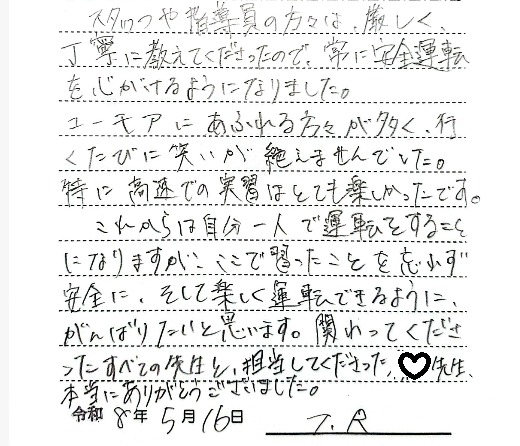 スタッフや指導員の方々は、厳しく、
丁寧に教えてくださったので、常に安全運転
を心がけるようになりました。
ユーモアにあふれる方々が多く、行
くたびに笑いが絶えませんでした。
特に高速での実習はとても楽しかったです。
これからは自分一人で運転をすること
になりますが、ここで習ったことを忘れず
安全に、そして楽しく運転できるように、
がんばりたいと思います。関わってくださ
ったすべての先生と、担当してくださった、♡先生、
本当にありがとうございました。
令和 8年 5月16日 T.R